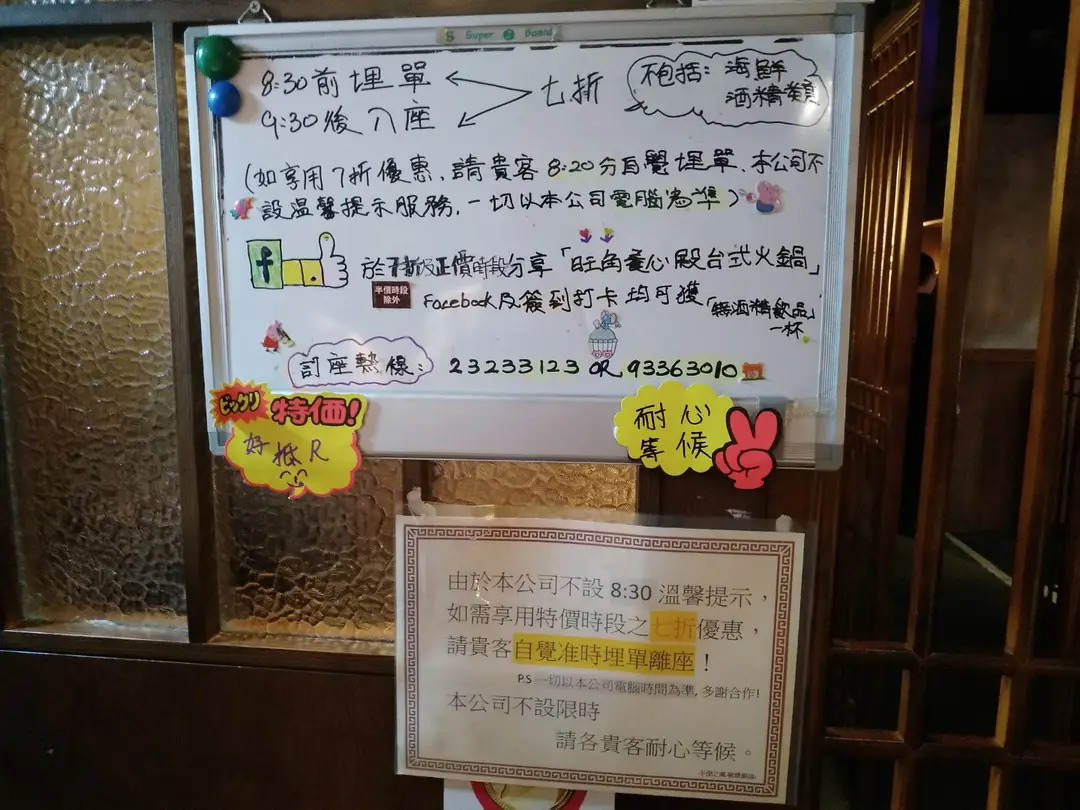 S Super Board
8:30前埋單
9:30後入座
七折
砲括：海鮮
酒精類
(如享用7折優惠，請貴客8:20分自覺埋單、本公司不
設溫馨提示服務，一切以本公司電腦為準)
f
於7折及正價時段分享「旺角養心殿台式火鍋」
半價時段
除外
Facebook及簽到打卡均可獲「無酒精飲品」
一杯
訂座熱線：23233123 OR 93363010
ビックリ
特価!
好抵R
耐心
等候
由於本公司不設 8:30 溫馨提示，
如需享用特價時段之七折優惠，
請貴客自覺准時埋單離座！
P.S 一切以本公司電腦時間為準, 多謝合作!
本公司不設限時
請各貴客耐心等候。